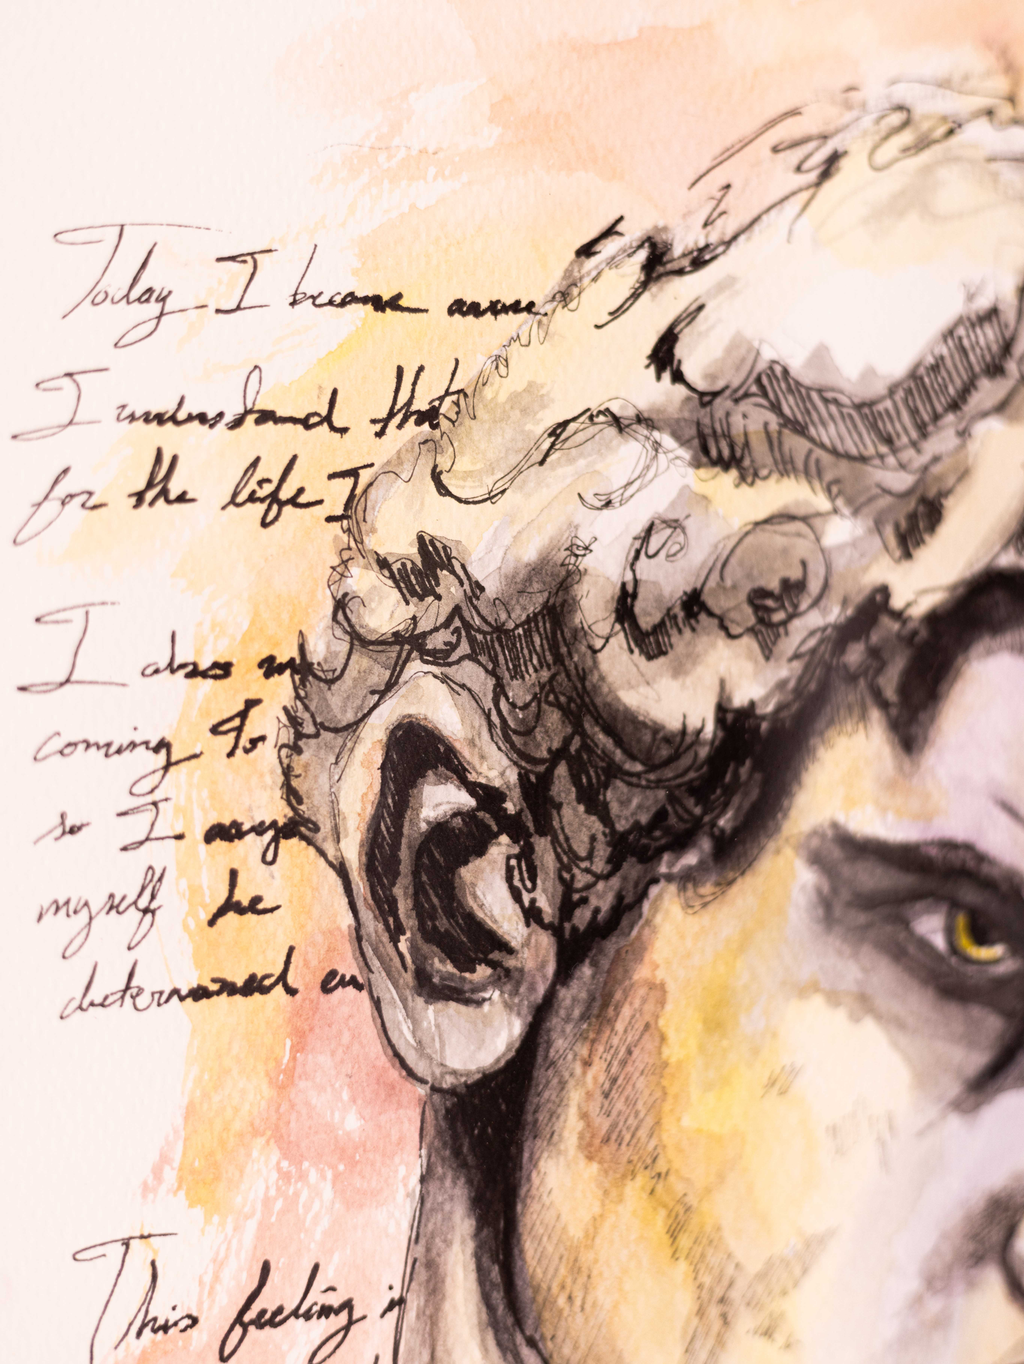 Today I became aware
I understand that
for the life I
I also
coming to
so I
myself he
determined en
This feeling is